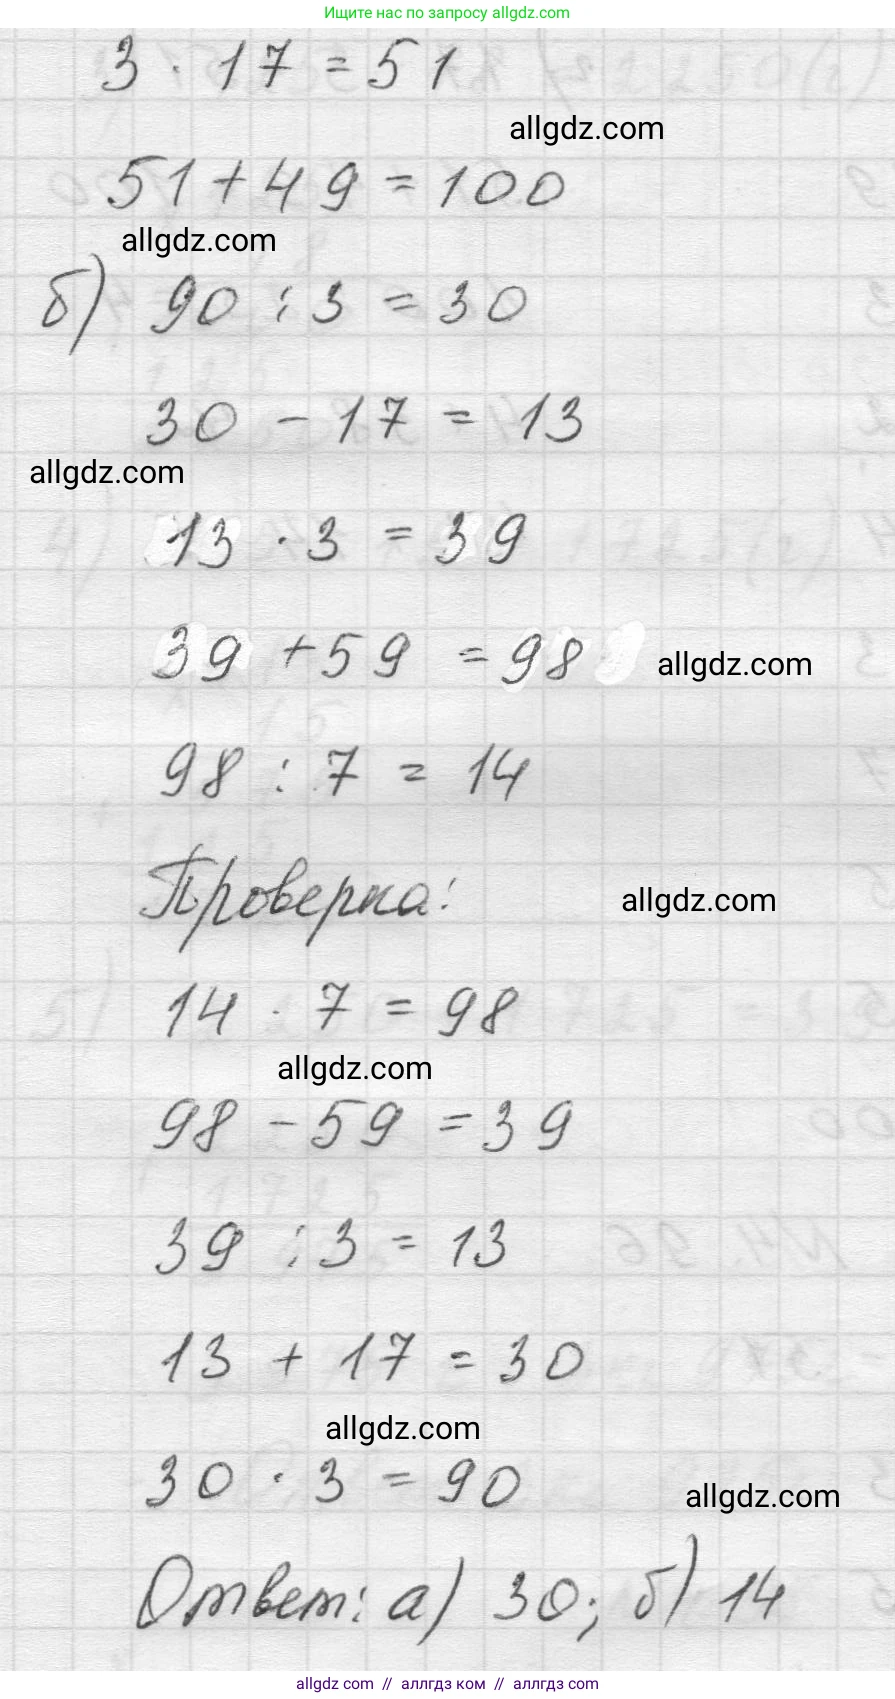 Ищите нас по запросу allgdz.com
3 · 17 = 51
allgdz.com
51 + 49 = 100
allgdz.com
б) 90 : 3 = 30
30 - 17 = 13
allgdz.com
13 · 3 = 39
39 + 59 = 98
allgdz.com
98 : 7 = 14
Проверка:
allgdz.com
14 · 7 = 98
allgdz.com
98 - 59 = 39
39 : 3 = 13
13 + 17 = 30
allgdz.com
30 · 3 = 90
allgdz.com
Ответ: а) 30; б) 14
allgdz.com // аллгдз ком // аллгдз.com